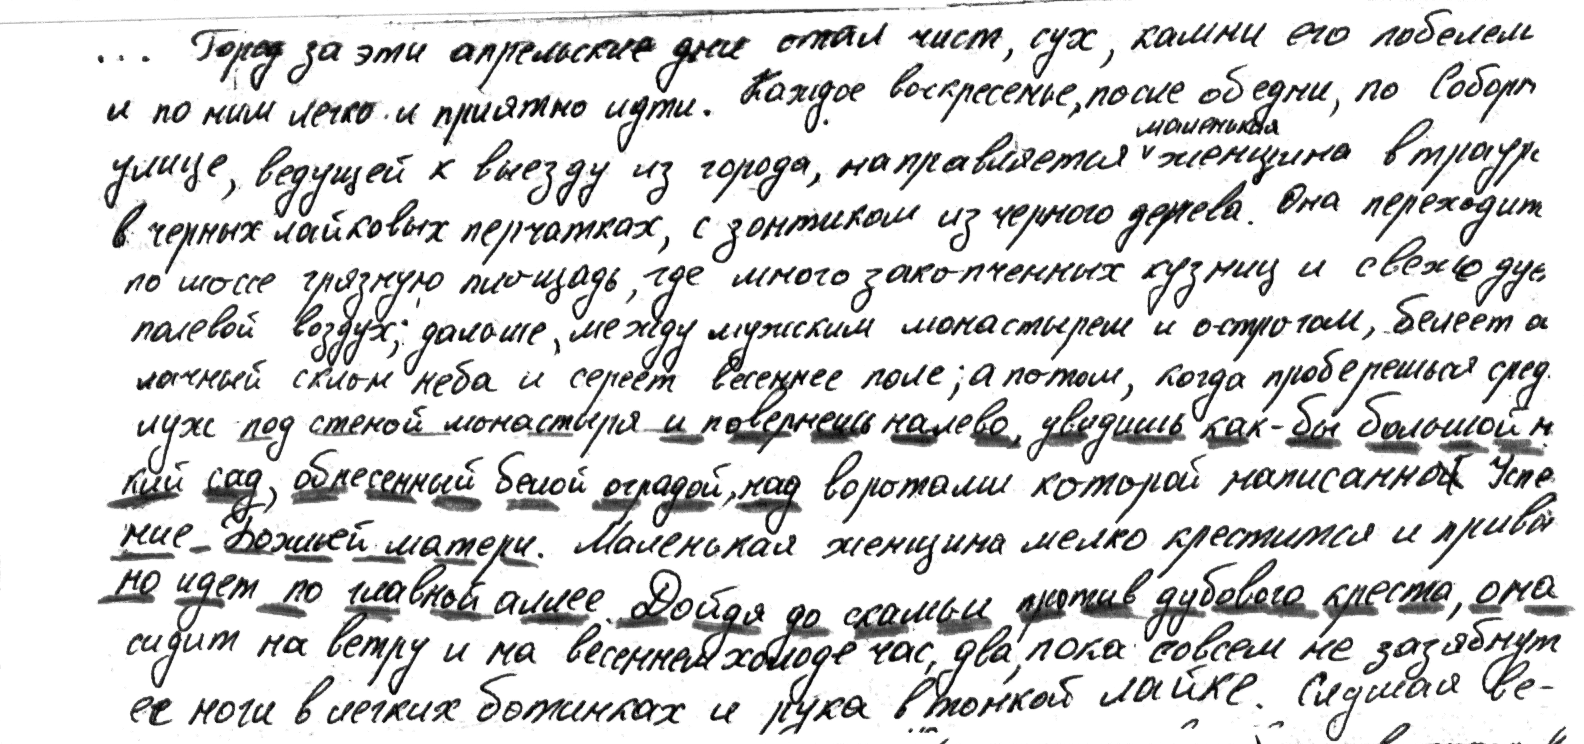 ... Город за эти апрельские дни стал чист, сух, камни его побелели
и по ним легко и приятно идти. Каждое воскресенье, после обедни, по Соборн
маленькая
улице, ведущей к выезду из города, направляется женщина в трауре
в черных лайковых перчатках, с зонтиком из черного дерева. Она переходит
по шоссе грязную площадь, где много закопченных кузниц и свежо дуе
полевой воздух; дальше, между мужским монастырем и острогом, белеет о
лачный склон неба и сереет весеннее поле; а потом, когда проберешься сред
луж под стеной монастыря и повернешь налево, увидишь как-бы большой н
кий сад, обнесенный белой оградой, над воротами которой написанно Успе
ние Божьей матери. Маленькая женщина мелко крестится и привы
но идет по главной аллее. Дойдя до скамьи против дубового креста, она
сидит на ветру и на весеннем холоде час, два, пока совсем не зазябнут
ее ноги в легких ботинках и рука в тонкой лайке. Слушая ве-